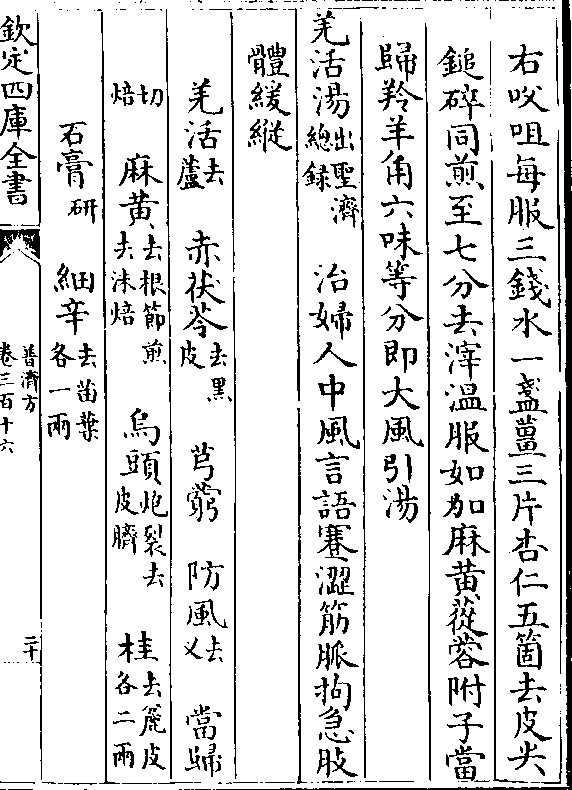 右㕮咀每服三錢水一盞薑三片杏仁五箇去皮尖
鎚碎同煎至七分去滓温服如加麻黄蓯蓉附子當
歸羚羊角六味等分即大風引湯
羌活湯出聖濟總録　治婦人中風言語蹇澀筋脈拘急肢
體緩縱
羌活去蘆　赤茯苓去黑皮　芎藭　防風去乂　當歸
切焙　麻黄去根節煎去沫焙　烏頭炮裂去皮臍　桂去麄皮各二兩
石膏研　細辛去苗葉各一兩
欽定四庫全書
普濟方
卷三百十六
二十